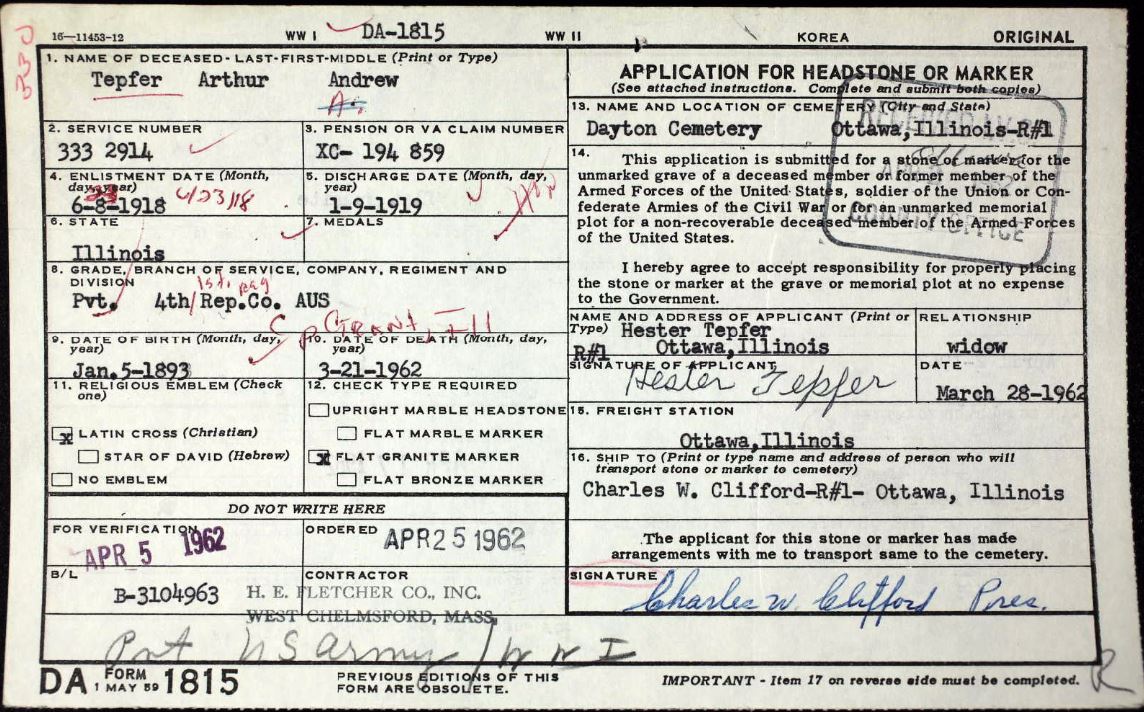 330
16—11453-12 WW I DA-1815 WW II KOREA ORIGINAL
1. NAME OF DECEASED - LAST-FIRST-MIDDLE (Print or Type)
Tepfer Arthur Andrew
A.
2. SERVICE NUMBER
333 2914
3. PENSION OR VA CLAIM NUMBER
XC- 194 859
4. ENLISTMENT DATE (Month,
day, year)
6-8-1918 6/23/18
5. DISCHARGE DATE (Month, day,
year)
1-9-1919
6. STATE
Illinois
7. MEDALS
8. GRADE, BRANCH OF SERVICE, COMPANY, REGIMENT AND
DIVISION
Pvt. 4th Rep.Co. AUS
C GRANT, Ill
9. DATE OF BIRTH (Month, day,
year)
Jan.5-1893
10. DATE OF DEATH (Month, day,
year)
3-21-1962
11. RELIGIOUS EMBLEM (Check
one)
x LATIN CROSS (Christian)
STAR OF DAVID (Hebrew)
NO EMBLEM
12. CHECK TYPE REQUIRED
UPRIGHT MARBLE HEADSTONE
FLAT MARBLE MARKER
x FLAT GRANITE MARKER
FLAT BRONZE MARKER
DO NOT WRITE HERE
FOR VERIFICATION
APR 5 1962
ORDERED
APR 25 1962
B/L
B-3104963
CONTRACTOR
H. E. FLETCHER CO., INC.
WEST CHELMSFORD, MASS.
Pvt US Army / WW I
APPLICATION FOR HEADSTONE OR MARKER
(See attached instructions. Complete and submit both copies)
13. NAME AND LOCATION OF CEMETERY (City and State)
Dayton Cemetery Ottawa,Illinois-R#1
RECEIVED
COUNTY OFFICE
14. This application is submitted for a stone or marker for the
unmarked grave of a deceased member or former member of the
Armed Forces of the United States, soldier of the Union or Con-
federate Armies of the Civil War or for an unmarked memorial
plot for a non-recoverable deceased member of the Armed Forces
of the United States.
I hereby agree to accept responsibility for properly placing
the stone or marker at the grave or memorial plot at no expense
to the Government.
NAME AND ADDRESS OF APPLICANT (Print or
Type) Hester Tepfer
R#1 Ottawa,Illinois
RELATIONSHIP
widow
SIGNATURE OF APPLICANT
Hester Tepfer
DATE
March 28-1962
15. FREIGHT STATION
Ottawa,Illinois
16. SHIP TO (Print or type name and address of person who will
transport stone or marker to cemetery)
Charles W. Clifford-R#1- Ottawa, Illinois
The applicant for this stone or marker has made
arrangements with me to transport same to the cemetery.
SIGNATURE
Charles W. Clifford Pres.
DA FORM 1 MAY 59 1815
PREVIOUS EDITIONS OF THIS
FORM ARE OBSOLETE.
IMPORTANT - Item 17 on reverse side must be completed.
R